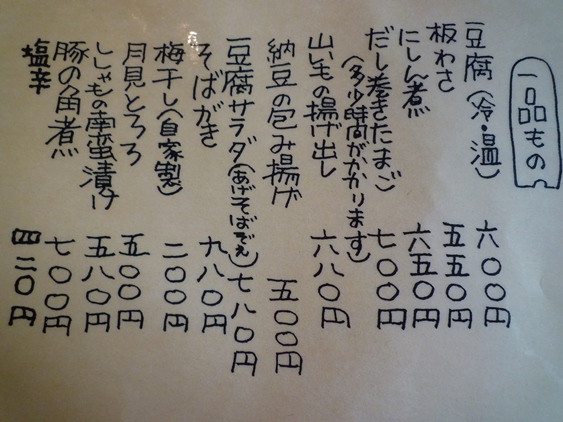 一品もの
豆腐（冷・温） 六〇〇円
板わさ 五五〇円
にしん煮 六五〇円
だし巻きたまご 七〇〇円
（多少時間がかかります）
山いもの揚げ出し 六八〇円
納豆の包み揚げ 五〇〇円
豆腐サラダ（あげそばでぇ） 七八〇円
そばがき 九八〇円
梅干し（自家製） 二〇〇円
月見とろろ 五〇〇円
ししゃもの南蛮漬け 五八〇円
豚の角煮 七〇〇円
塩辛 四二〇円